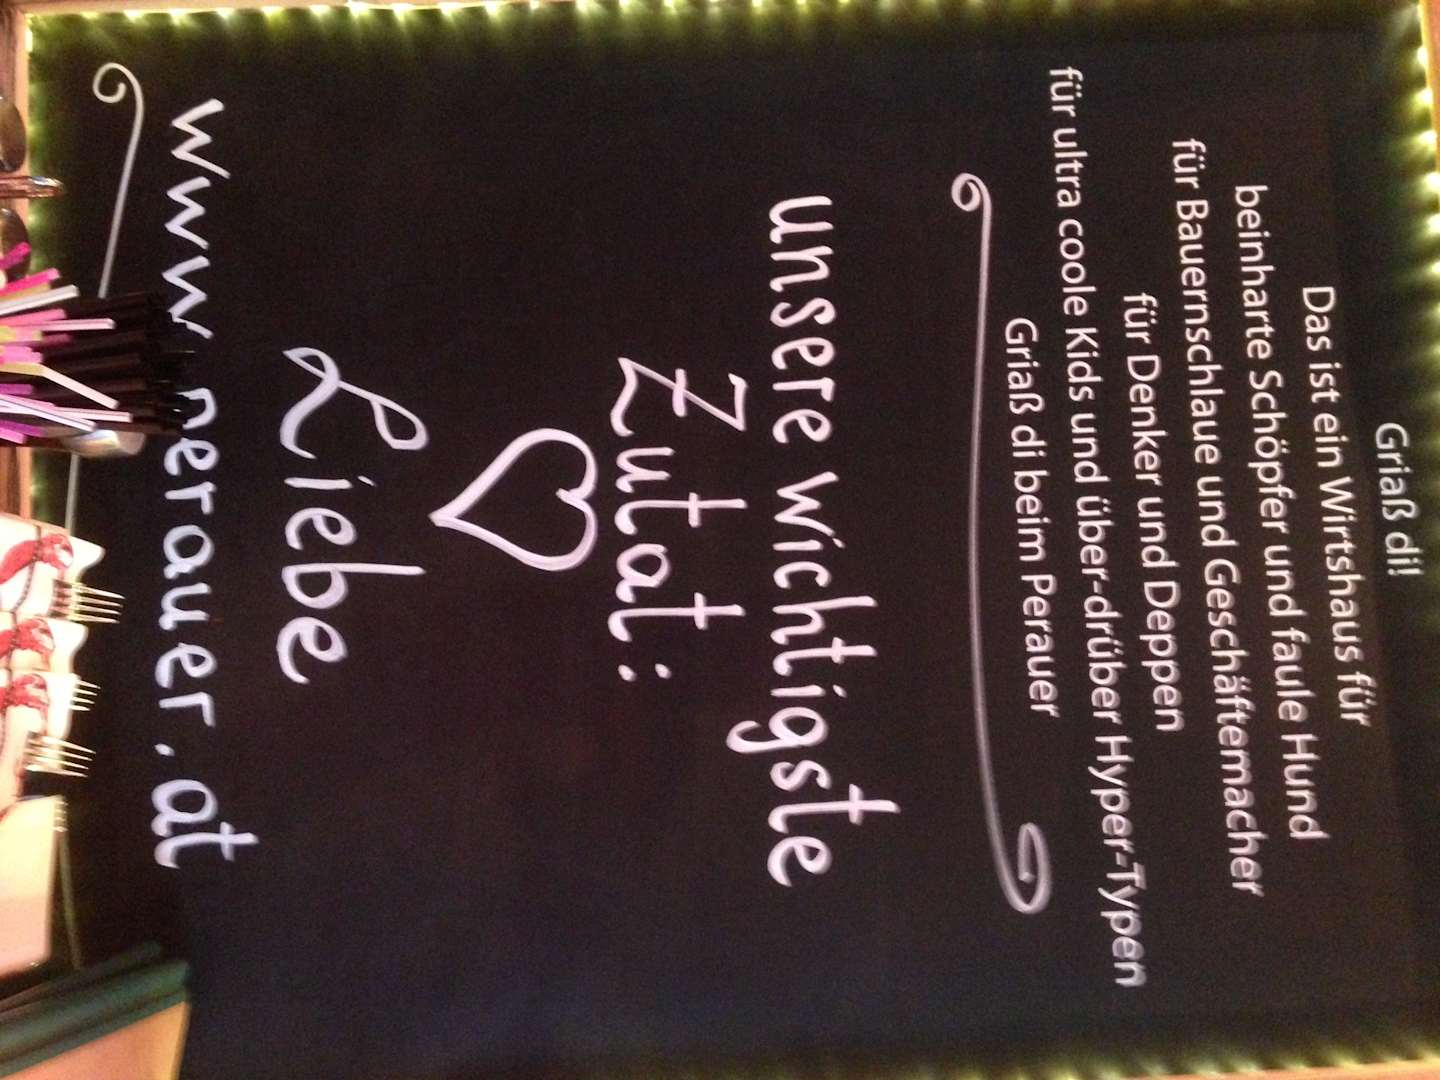 Griaß di!
Das ist ein Wirtshaus für
beinharte Schöpfer und faule Hund
für Bauernschlaue und Geschäftemacher
für Denker und Deppen
für ultra coole Kids und über-drüber Hyper-Typen
Griaß di beim Perauer
unsere wichtigste
Zutat:
Liebe
www.perauer.at